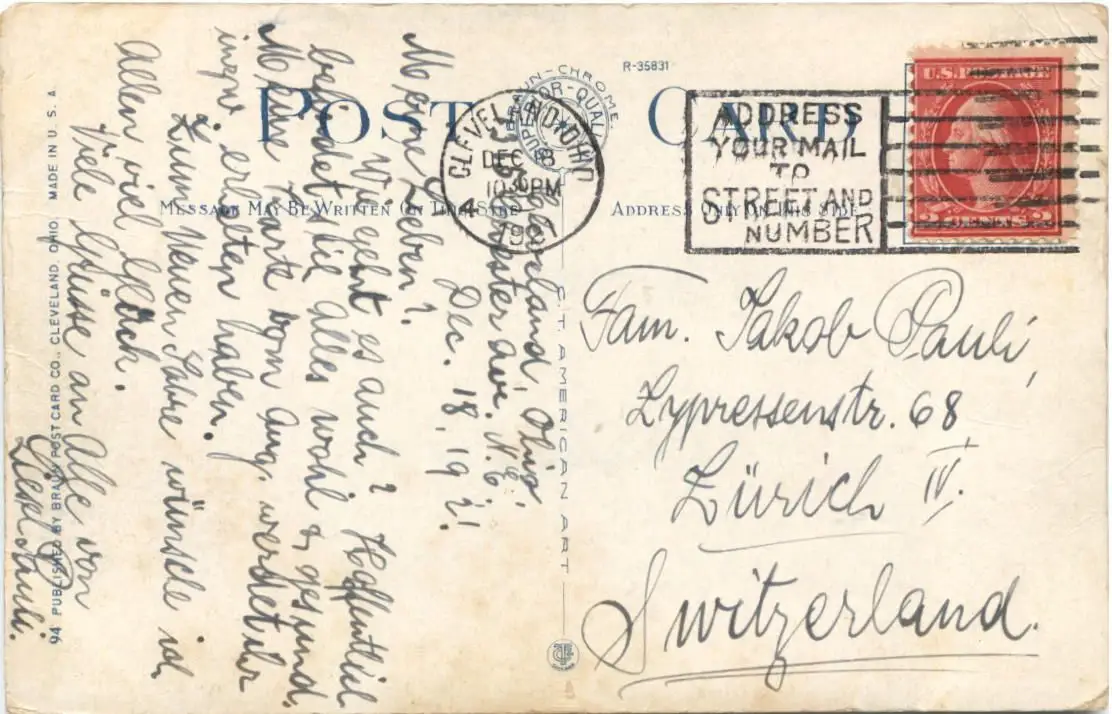 R-35831
POST CARD
MESSAGE MAY BE WRITTEN ON THIS SIDE
ADDRESS ONLY ON THIS SIDE
CLEVELAND, OHIO
DEC 18
10 30 PM
1921
ADDRESS
YOUR MAIL
TO
STREET AND
NUMBER
U.S. POSTAGE
2 CENTS 2
Cleveland, Ohio,
ave. N.E.
Dec. 18, 1921.
Meine Lieben!
Wie geht es auch? Hoffentlich
befindet Ihr alles wohl & gesund.
Meine Karte vom Aug. werdet ihr
erhalten haben.
Zum Neuen Jahre wünsche ich
Allen viel Glück.
Viele Grüsse an Alle von
Pauli.
Fam. Jakob Pauli,
Zypressenstr. 68
Zürich IV.
Switzerland.
C.T. AMERICAN ART
94 PUBLISHED BY BRAUN POST CARD CO., CLEVELAND, OHIO. MADE IN U. S. A.